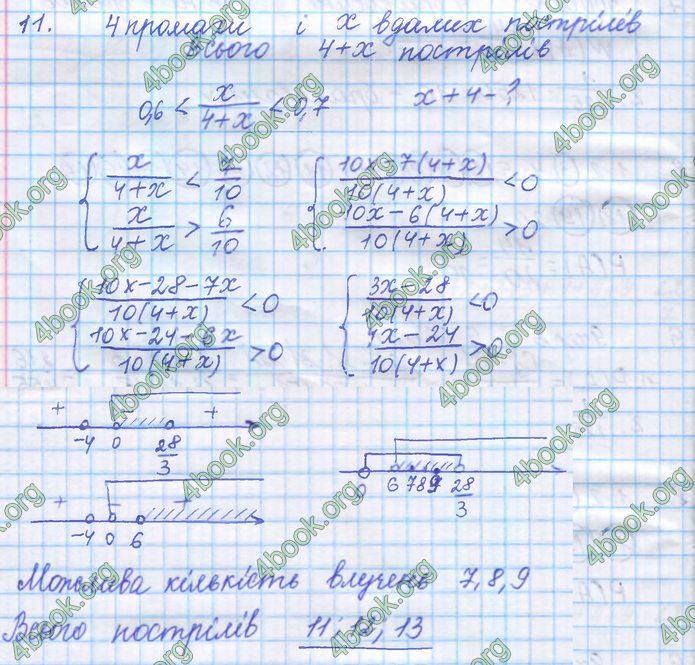 11. 4 промахи і x вдалих пострілів
всього 4+x пострілів
0,6 < x/(4+x) < 0,7 - x+4-?
{ x/(4+x) < 7/10 { (10x-7(4+x))/(10(4+x)) < 0
x/(4+x) > 6/10 (10x-6(4+x))/(10(4+x)) > 0
{ (10x-28-7x)/(10(4+x)) < 0 { (3x-28)/(10(4+x)) < 0
(10x-24-6x)/(10(4+x)) > 0 (4x-24)/(10(4+x)) > 0
+ - +
-4 0 28/3
0 6 7 8 9 28/3
+ - +
-4 0 6
Можлива кількість влучень 7, 8, 9
Всього пострілів 11, 12, 13
4book.org